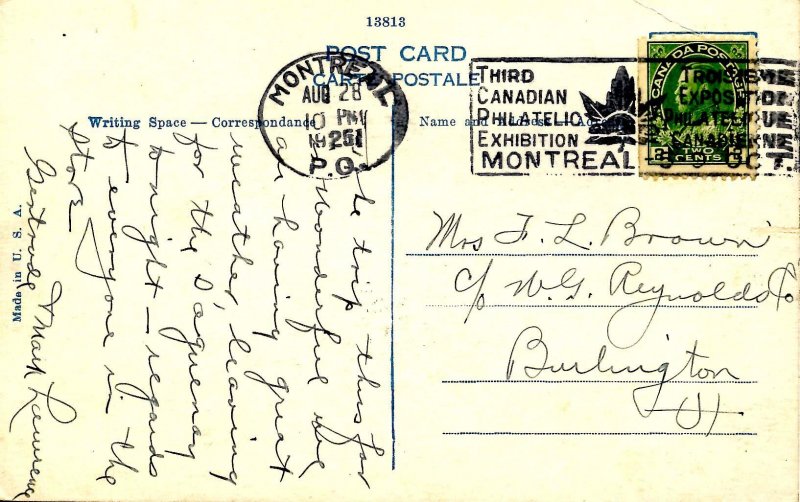 13813
POST CARD
CARTE POSTALE
Writing Space — Correspondance
Name and Address
MONTREAL
AUG 28
PM
1925
P.Q.
THIRD
CANADIAN
PHILATELIC
EXHIBITION
MONTREAL
TROISIEME
EXPOSITION
PHILATELIQUE
CANADIENNE
OCT.
CANADA POSTAGE
TWO
CENTS
Made in U. S. A.
The trip thus far
wonderful we
are having great
weather, leaving
for the Saguenay
tonight — regards
to everyone in the
store
Gertrude & Mark Lawrence
Mrs F. L. Brown
c/o W. G. Reynolds Co
Burlington
Vt.